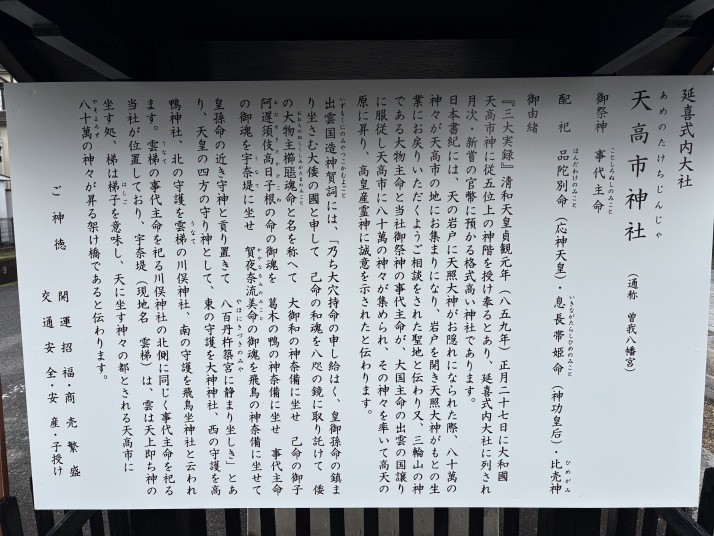 延喜式内大社
天高市神社
あめのたけちじんじゃ
（通称　曽我八幡宮）
御祭神　事代主命
ことしろぬしのみこと
配　祀　品陀別命（応神天皇）・息長帯姫命（神功皇后）・比売神
ほんだわけのみこと
いきながたらしひめのみこと
ひめがみ
御由緒
『三大実録』清和天皇貞観元年（八五九年）正月二十七日に大和國
天高市神に従五位上の神階を授け奉るとあり、延喜式内大社に列され
月次・新嘗の官幣に預かる格式高い神社であります。
日本書紀には、天の岩戸に天照大神がお隠れになられた際、八十萬の
神々が天高市の地にお集まりになり、岩戸を開き天照大神がもとの生
業にお戻りいただくようご相談をされた聖地と伝わり又、三輪山の神
である大物主命と当社御祭神の事代主命が、大国主命の出雲の国譲り
に服従し天高市に八十萬の神々が集められ、その神々を率いて高天の
原に昇り、高皇産霊神に誠意を示されたと伝わります。
いずもくにのみやつこかむよごと
出雲国造神賀詞には、「乃ち大穴持命の申し給はく、皇御孫命の鎮ま
り坐さむ大倭の國と申して　己命の和魂を八咫の鏡に取り託けて　倭
の大物主櫛𤭖魂命と名を称へて　大御和の神奈備に坐せ　己命の御子
阿遅須伎高日子根の命の御魂を　葛木の鴨の神奈備に坐せ　事代主命
の御魂を宇奈堤に坐せ　賀夜奈流美命の御魂を飛鳥の神奈備に坐せて
うなて
かやなるみのみこと
皇孫命の近き守神と貢り置きて　八百丹杵築宮に静まり坐しき」とあ
やほにきづきのみや
り、天皇の四方の守り神として、東の守護を大神神社、西の守護を高
鴨神社、北の守護を雲梯の川俣神社、南の守護を飛鳥坐神社と云われ
うなて
ます。雲梯の事代主命を祀る川俣神社の北側に同じく事代主命を祀る
うなて
当社が位置しており、宇奈堤（現地名　雲梯）は、雲は天上即ち神の
坐す処、梯は梯子を意味し、天に坐す神々の都とされる天高市に
はしご
八十萬の神々が昇る架け橋であると伝わります。
やそよろず
ご神徳　開運招福・商売繁盛
交通安全・安産・子授け